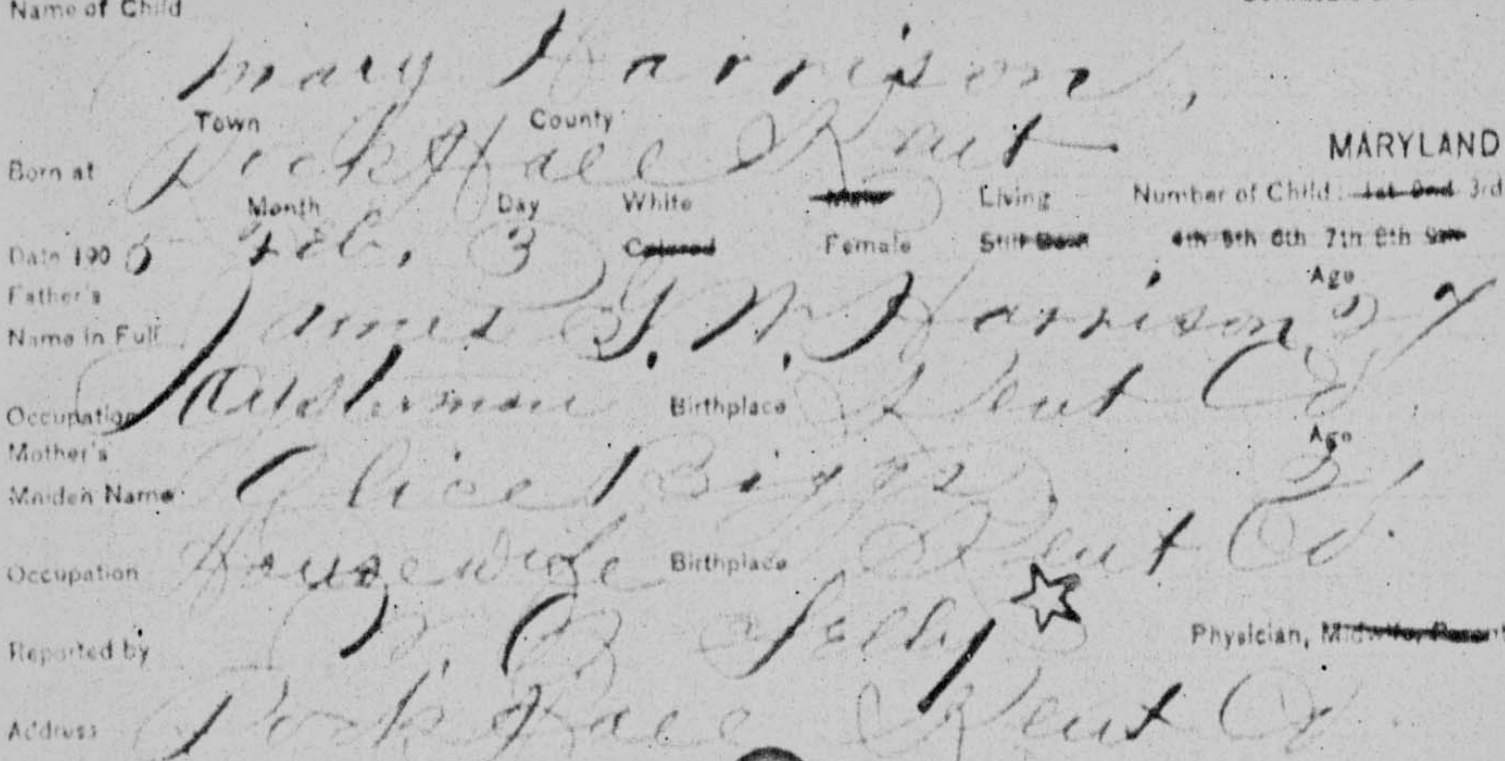 Name of Child
Mary Harrison,
Town County
Born at Rock Hall Kent MARYLAND
Month Day White Male Living Number of Child: 1st 2nd 3rd
Date 190 Feb. 3 Colored Female Still Born 4th 5th 6th 7th 8th 9th
Father's Age
Name in Full James Harrison 27
Occupation Oysterman Birthplace Kent Co.
Mother's Age
Maiden Name Alice
Occupation Housewife Birthplace Kent Co.
Reported by Selby Physician, Midwife, Parent
Address Rock Hall Kent Co.